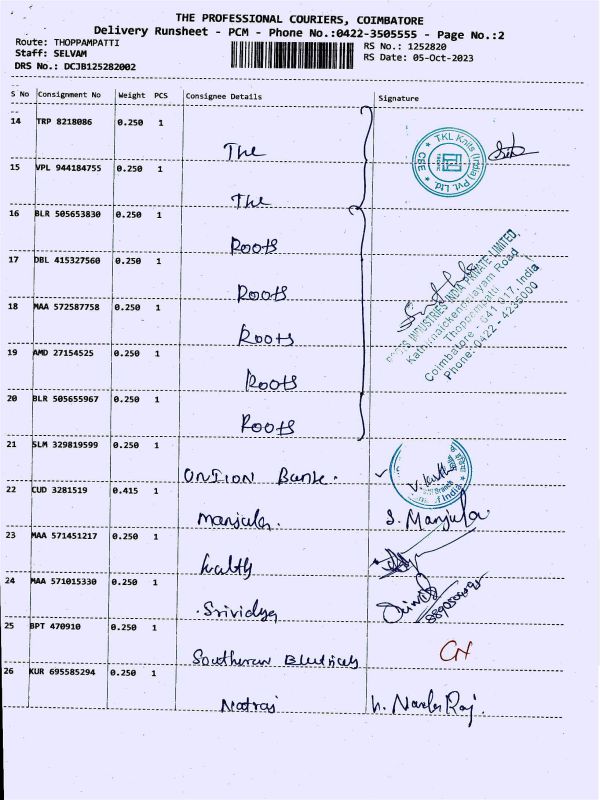 THE PROFESSIONAL COURIERS, COIMBATORE
Delivery Runsheet - PCM - Phone No.:0422-3505555 - Page No.:2
Route: THOPPAMPATTI
RS No.: 1252820
Staff: SELVAM
RS Date: 05-Oct-2023
DRS No.: DCJB125282002
S No Consignment No Weight PCS Consignee Details Signature
14 TRP 8218086 0.250 1
The
TKL Knits (India) Pvt. Ltd
15 VPL 944184755 0.250 1
The
16 BLR 505653830 0.250 1
Roots
17 DBL 415327560 0.250 1
Roots
18 MAA 572587758 0.250 1
Roots
ROOTS INDUSTRIES INDIA PRIVATE LIMITED,
Kathirnaickenpalayam Road
Thoppampatti
Coimbatore - 641 017, India
Phone: 0422 - 4235000
19 AMD 27154525 0.250 1
Roots
20 BLR 505655967 0.250 1
Roots
21 SLM 329819599 0.250 1
Bank.
of India
22 CUD 3281519 0.415 1
Manjula.
S. Manjula
23 MAA 571451217 0.250 1
24 MAA 571015330 0.250 1
Srividya
25 BPT 470910 0.250 1
Southern Electricals
26 KUR 695585294 0.250 1
Natraj